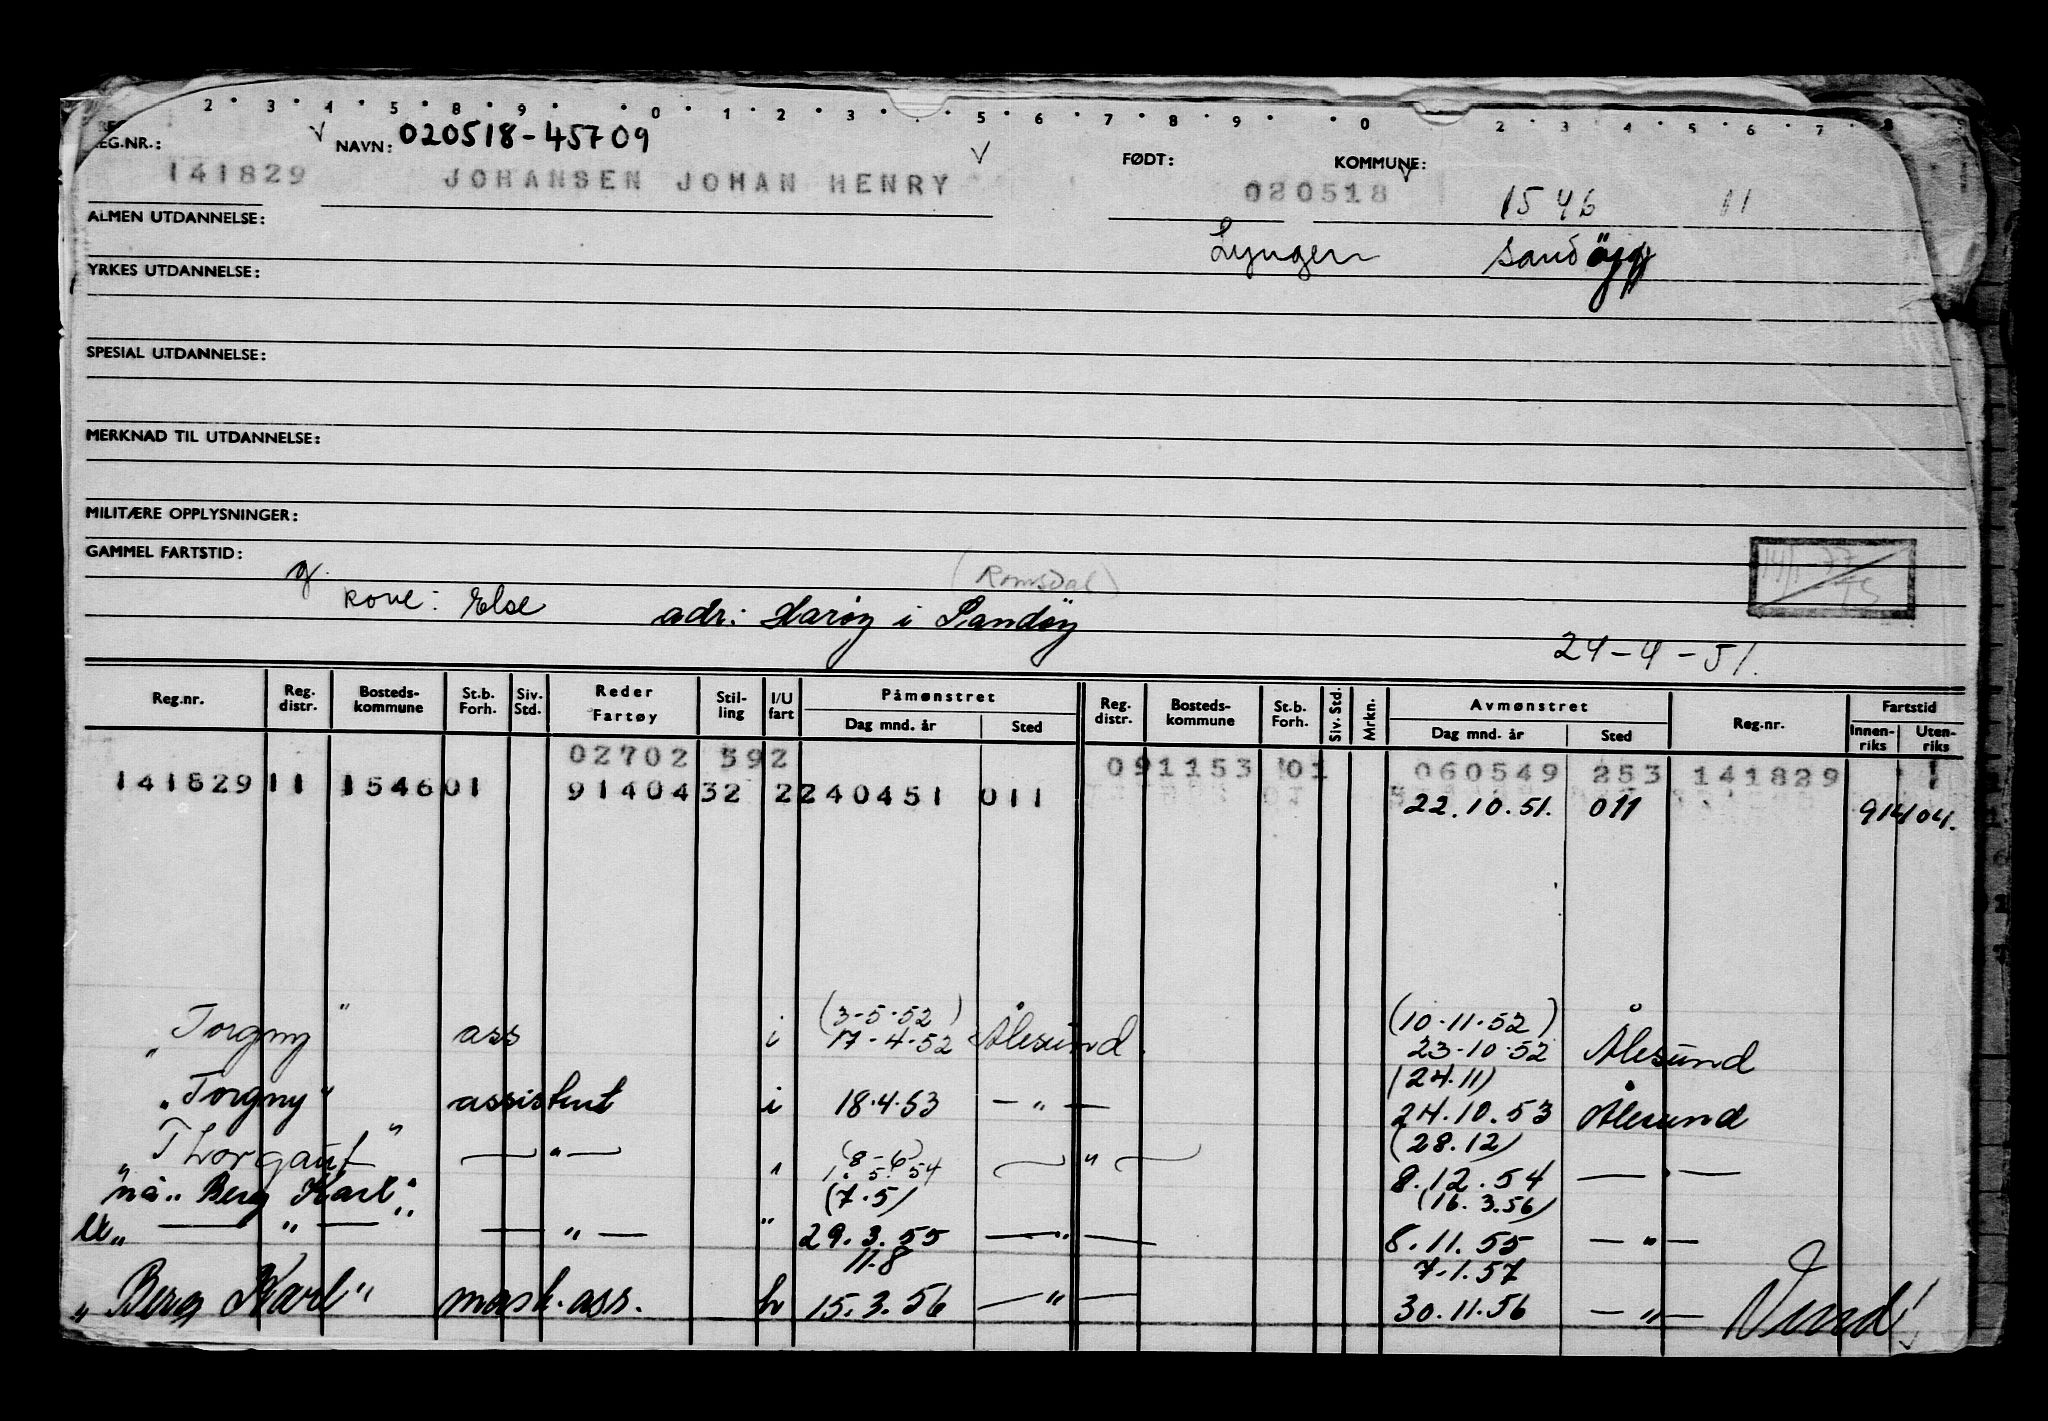 2 3 4 5 8 9 0 1 2 3 5 6 7 8 9 0 2 3 4 5 6 7 8
REG.NR.: NAVN: 020518-45709 FØDT: KOMMUNE:
141829 JOHANSEN JOHAN HENRY 020518 1546 11
ALMEN UTDANNELSE: Lyngen Sandöy
YRKES UTDANNELSE:
SPESIAL UTDANNELSE:
MERKNAD TIL UTDANNELSE:
MILITÆRE OPPLYSNINGER:
GAMMEL FARTSTID: 14/1-77
g. (Romsdal) TS
kone: Else adr: Harøy i Sandöy
24-4-51.
Reg.nr. Reg. distr. Bosteds-kommune St.b. Forh. Siv. Std. Reder Fartøy Stil-ling I/U fart Påmønstret Dag mnd. år Sted Reg. distr. Bosteds-kommune St.b. Forh. Siv. Std. Mrkn. Avmønstret Dag mnd. år Sted Reg.nr. Fartstid Innen-riks Uten-riks
02702 592 091153 01 060549 253 141829 1
141829 11 1546 01 91404 32 2 240451 011 22.10.51. 011 91404.
(3-5-52) (10-11-52)
"Torgny" ass i 17-4-52 Ålesund 23-10-52 Ålesund
(24.11)
"Torgny" assistent i 18.4.53 — " — 24.10.53 Ålesund
(8-6) (28.12)
"Thorgaut" — " — 1.5.54 — " — 8.12.54 — " —
nå "Berg Karl" (7.5) (16.3.56)
" — " — " — " — " 29.3.55 — " — 8.11.55 — " —
11.8 7.1.57
"Berg Karl" mask.ass. h 15.3.56 — " — 30.11.56 — " — Vend!